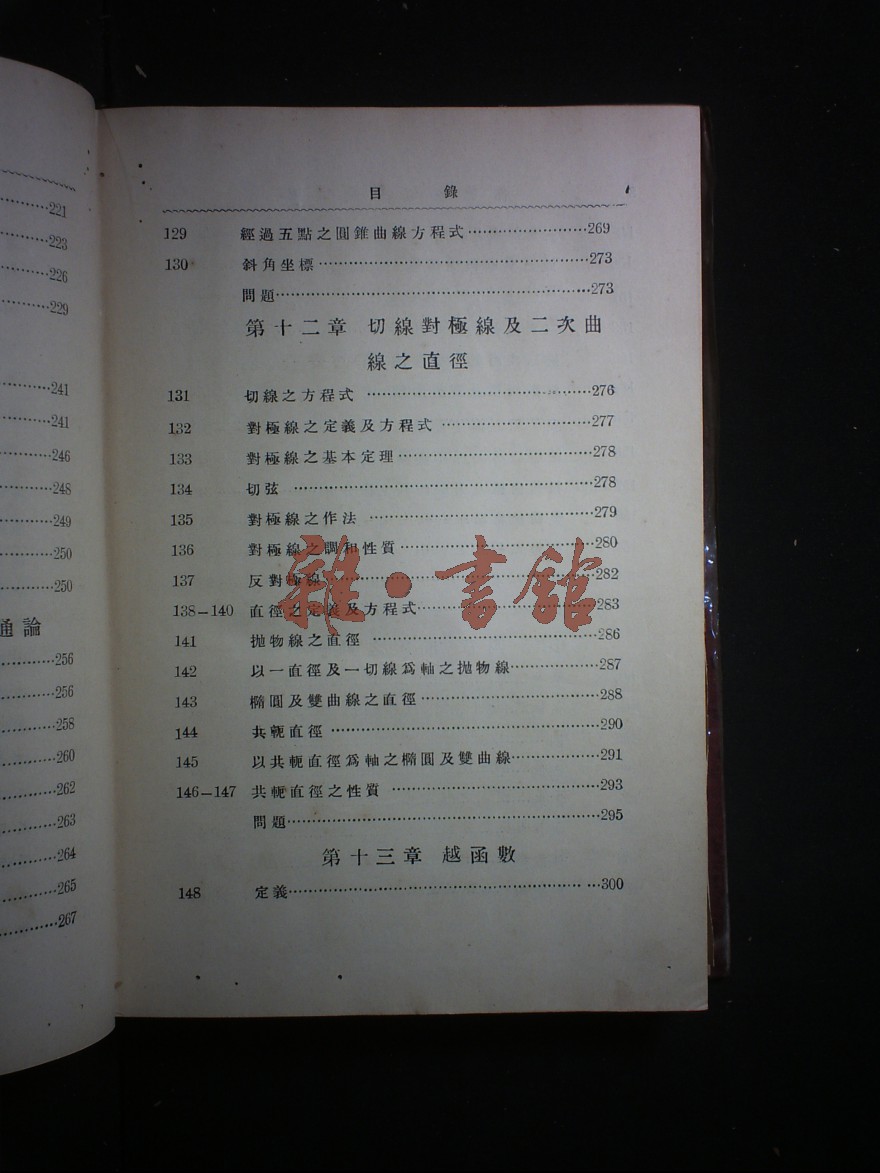 221
223
226
229
241
241
246
248
249
250
250
通論
256
256
258
260
262
263
264
265
267
目錄
129 經過五點之圓錐曲線方程式························269
130 斜角坐標························273
問題························273
第十二章 切線對極線及二次曲
線之直徑
131 切線之方程式························276
132 對極線之定義及方程式························277
133 對極線之基本定理························278
134 切弦························278
135 對極線之作法························279
136 對極線之調和性質························280
137 反對極線························282
138—140 直徑之定義及方程式························283
141 拋物線之直徑························286
142 以一直徑及一切線爲軸之拋物線························287
143 橢圓及雙曲線之直徑························288
144 共軛直徑························290
145 以共軛直徑爲軸之橢圓及雙曲線························291
146—147 共軛直徑之性質························293
問題························295
第十三章 越函數
148 定義························300
雜·書館